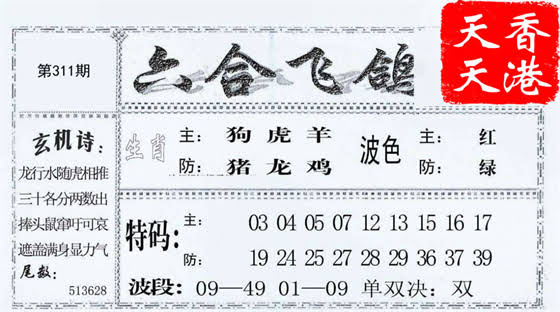 第311期
六合飞鸽
香港
天天
玄机诗:
龙行水随虎相推
三十各分两数出
捧头鼠窜吁可哀
遮盖满身显力气
尾数:
513628
生肖
主: 狗虎羊
防: 猪龙鸡
波色
主: 红
防: 绿
特码:
主: 03 04 05 07 12 13 15 16 17
防: 19 24 25 27 28 29 36 37 39
波段: 09—49 01—09 单双决: 双